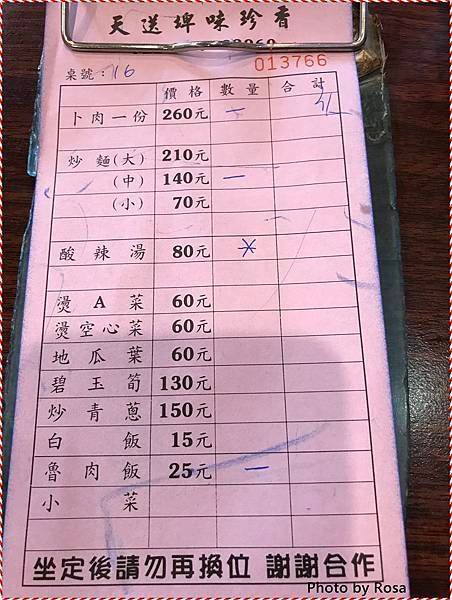 天送埤味珍香
013766
桌號：16
價格 數量 合計
卜肉一份 260元 一
炒麵(大) 210元
(中) 140元 一
(小) 70元
酸辣湯 80元
燙A菜 60元
燙空心菜 60元
地瓜葉 60元
碧玉筍 130元
炒青蔥 150元
白飯 15元
魯肉飯 25元 一
小菜
坐定後請勿再換位 謝謝合作
Photo by Rosa